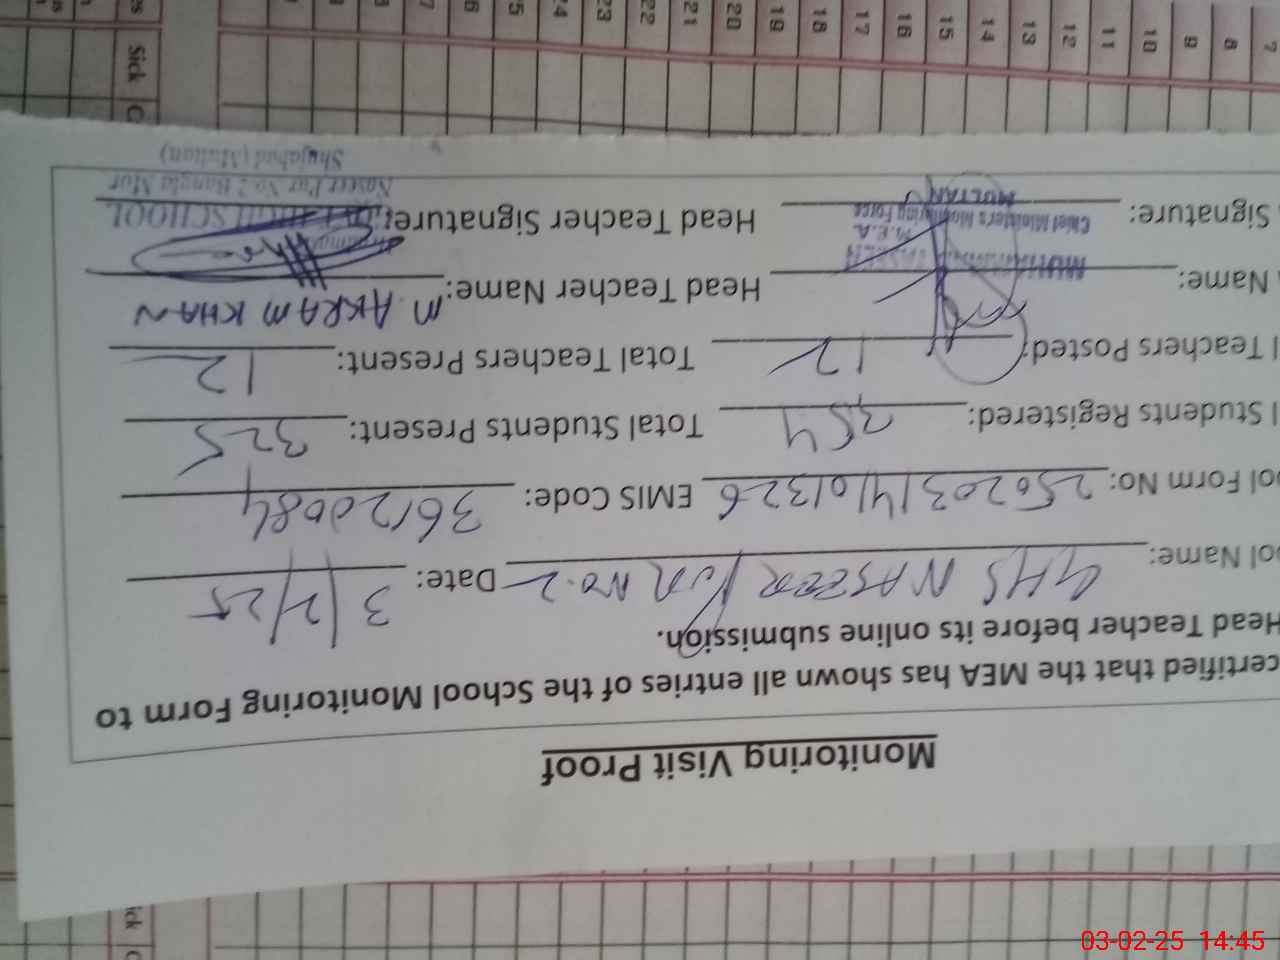 Monitoring Visit Proof
certified that the MEA has shown all entries of the School Monitoring Form to
Head Teacher before its online submission.
ool Name: GHS NASEER PUR NO.2 Date: 3/2/25
ool Form No: 2502031401326 EMIS Code: 36120084
l Students Registered: 354 Total Students Present: 325
l Teachers Posted: 12 Total Teachers Present: 12
Name: Head Teacher Name: M AKRAM KHAN
M.E.A.
Chief Minister's Monitoring Force
MULTAN
Signature: Head Teacher Signature:
HIGH SCHOOL
Naseer Pur No.2 Bangla Mor
Shujabad (Multan)
7 8 9 10 11 12 13 14 15 16 17 18 19 20 21 22 23 24 25
Sick
03-02-25 14:45